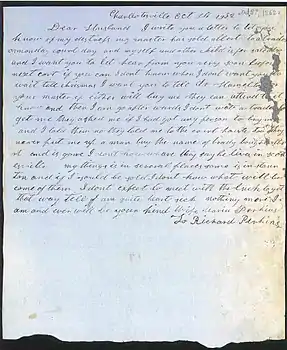 Charlottesville Oct 8th 1852
Dear Husband I write you a letter to let you
know of my distress my master has sold albert to a trader
on monday court day and myself and other child is for sale also
and I want you to let hear from you very soon before
next cort if you can I dont know when I dont want you to
wait till chrismas I want you to tell
your master if either will buy me they can attend to it
know and then I can go after wards I dont want a trader to
get me they asked me if I had got any person to buy me
and I told them no they told me to the court houste too they
never put me up a man buy the name of brady bought albert
and is gone I dont know whare they say he lives in scott
my things is in several places some is in staun
ton and if I would be sold I dont know what will be
come of them I dont expect to meet with the luck to get
that way till I am quite heart sick nothing more I
am and ever will be your kind wife Maria Perkins
To Richard Perkins